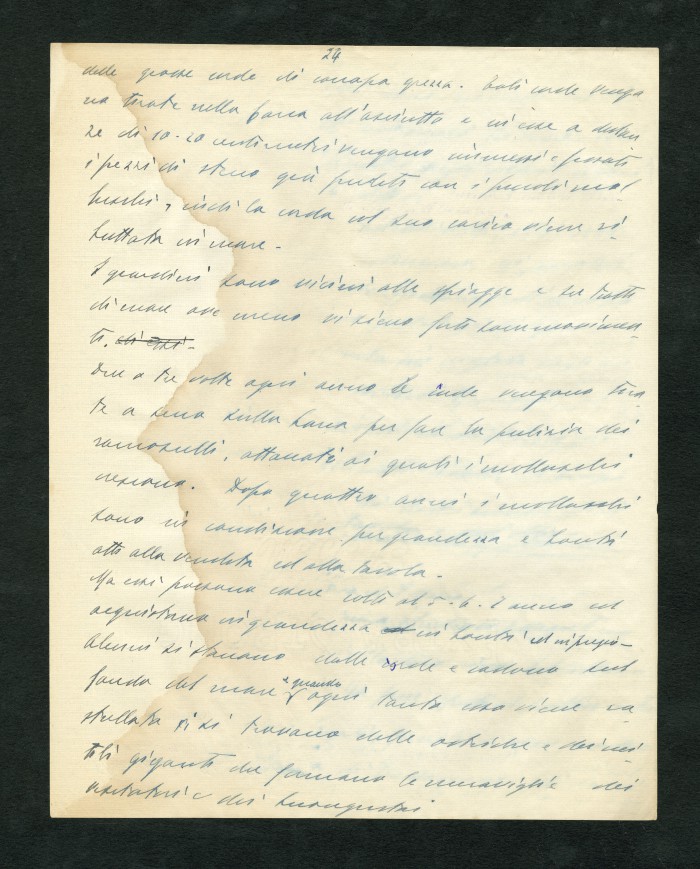 24
delle grosse corde di canapa grezza. Tali corde vengo
no tirate nella barca all'asciutto e in esse a distan
ze di 10-20 centimetri vengono immessi e fissati
i pezzi di steno già pudeti con i piccoli mol
luschi, indi la corda col suo carico viene ri
buttata in mare -
I giardini sono vicini alle spiagge e su tratti
di mare ove meno vi siano forti sommovimen
ti. di essi -
Due a tre volte ogni anno le corde vengono tira
te a sena sulla barca per fare la pulizia dei
ramoscelli, attaccati ai quali i molluschi
crescono. Dopo quattro anni i molluschi
sono in condizione per grandezza e bontà
atti alla vendita ed alla tavola -
Ma essi possono essere colti al 5-6-7 anno ed
acquistano in grandezza in bontà ed in pregio -
Alcuni si staccano dalle corde e cadono sul
fondo del mare e quando ogni tanto esso viene ra
strellato si trovano delle ostriche e dei mi
tili giganti che formano le meraviglie dei
visitatori e dei buongustai